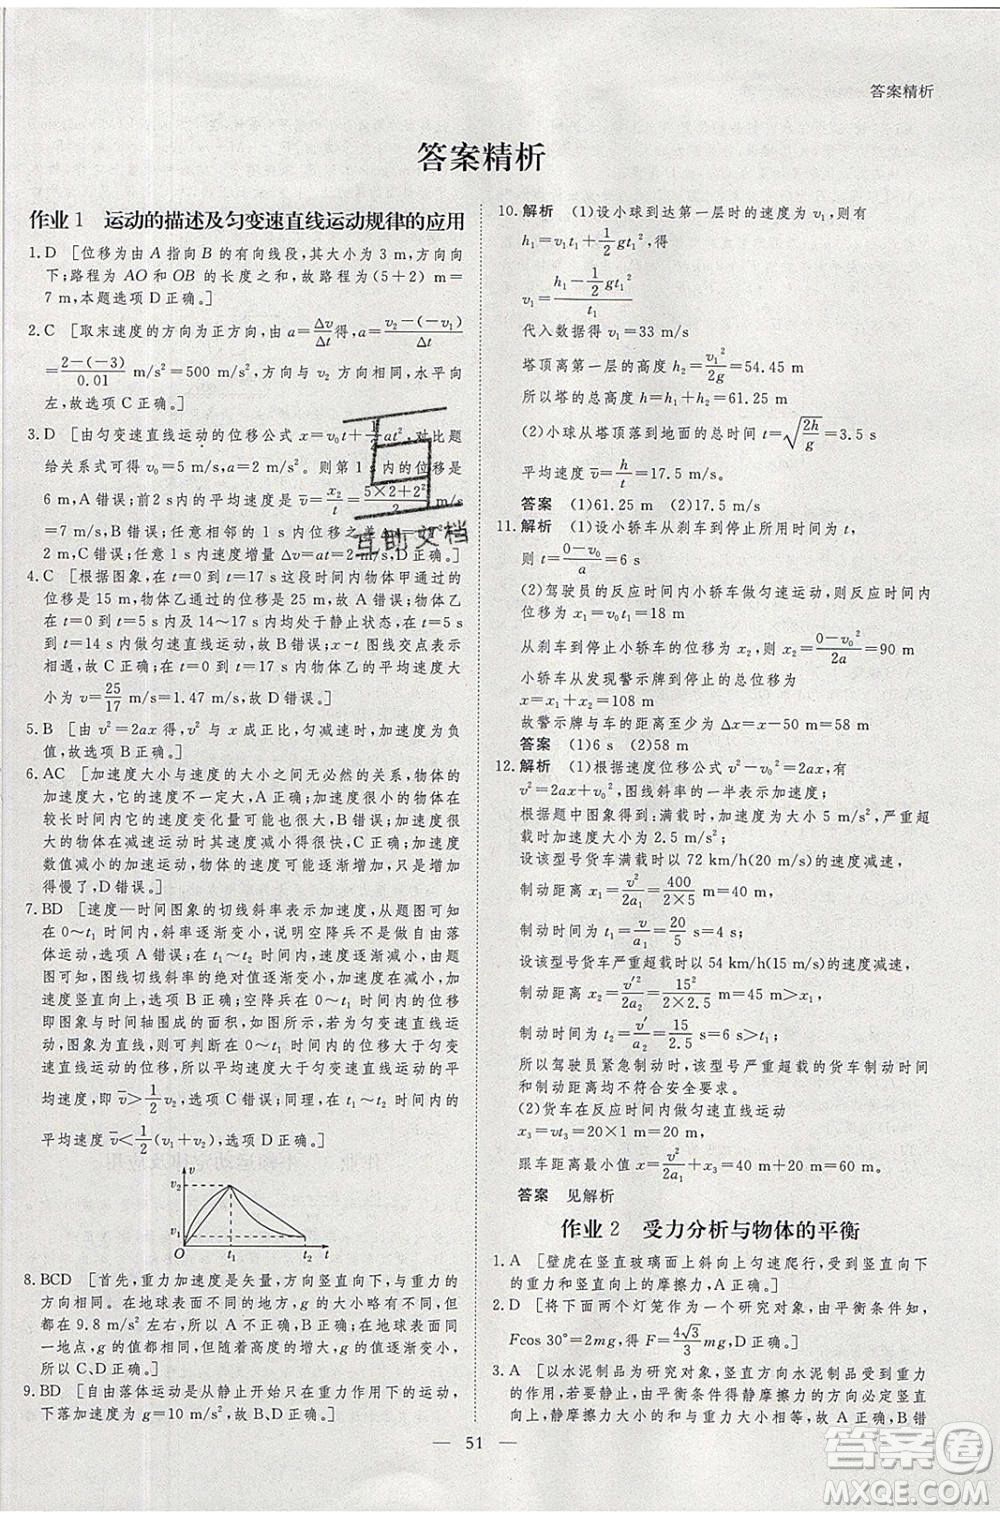 答案精析
答案精析
作业 1 运动的描述及匀变速直线运动规律的应用
1. D [位移为由 A 指向 B 的有向线段,其大小为 3 m,方向向
下;路程为 AO 和 OB 的长度之和,故路程为(5+2) m=
7 m,本题选项 D 正确。]
2. C [取末速度的方向为正方向,由 a=Δv/Δt得,a=(v₂-(-v₁))/Δt
=(2-(-3))/0.01 m/s²=500 m/s²,方向与 v₂ 方向相同,水平向
左,故选项 C 正确。]
3. D [由匀变速直线运动的位移公式 x=v₀t+½at²,对比题
给关系式可得 v₀=5 m/s,a=2 m/s²。则第 1 s 内的位移是
6 m,A 错误;前2 s内的平均速度是 v̄=x₂/t=(5×2+2²)/2 m/s
=7 m/s,B 错误;任意相邻的 1 s 内位移差 Δx=aT²=
2 m,C 错误;任意 1 s 内的速度增量 Δv=at=2 m/s,D 正确。]
4. C [根据图象,在 t=0 到 t=5 s 这段时间内物体甲通过的
位移是 15 m,物体乙通过的位移是 10 m,故 A 错误;物体乙
在 t=0 到 t=2 s 及 14～17 s 内处于静止状态,在 t=5 s
到 t=14 s 内做匀速直线运动,故 B 错误;x-t 图线交点表示
相遇,故 C 正确;在 t=0 到 t=17 s 内物体乙的平均速度大
小为 v=25/17 m/s=1.47 m/s,故 D 错误。]
5. B [由 v²=2ax 得,v² 与 x 成正比,匀减速时加速度为负
值,故选项 B 正确。]
6. AC [加速度大小与速度的大小无必然的关系,物体的
加速度大小,它的速度不一定大,A正确;加速度小的物体在
较长时间内它的速度变化量可能大,B 错误;加速度很大的
物体在减速运动时,速度会减小的很快,C 正确;加速度
数值减小的加速运动,物体的速度可能逐渐增加,只是增加
得慢了,D 错误。]
7. BD [速度—时间图象的切线斜率表示加速度,从题图可知,
在 0～t₁ 时间内,斜率逐渐变小,说明空降兵不是自由落
体运动,选项 A 错误;在 t₁～t₂ 时间内,速度逐渐减小,由题
图可知,图线切线斜率的绝对值逐渐变小,故空降兵的加
速度竖直向上,选项 B 正确;空降兵在 0～t₁ 时间内的位移
即图象与时间轴围成的面积,如图所示,若为匀变速直线运
动,在相同时间内,变加速直线运动的位移大于匀变速
直线运动的位移,故变加速直线运动大于匀变速直线运动的平
均速度,即 v̄>½v₂,选项 C 错误;同理,在 t₁～t₂ 时间内,
平均速度 v̄<½(v₁+v₂),选项 D 正确。]
v
v₂
v₁
O
t₁
t₂
t
8. BCD [首先,重力加速度是矢量,方向竖直向下,与重力的
方向相同。在地球表面不同的地方,g 的大小略有不同,但都
在 9.8 m/s² 左右,故 A 错误,B 正确;在地球表面同一
地点,g 的值都相同,但随着高度的增大,g 的值逐渐变小,
所以 C、D 正确。]
9. BD [自由落体运动是从静止开始只在重力作用下的运动,
下落加速度为 g=10 m/s²,故 B、D 正确。]
10. 解析 (1)设小球到达第一层时的速度为 v₁,则有
h₁=v₁t₁+½gt₁²
v₁=(h₁-½gt₁²)/t₁
代入数据得 v₁=33 m/s
塔顶离第一层的高度 h₂=v₁²/2g=54.45 m
所以塔的总高度 h=h₁+h₂=61.25 m
(2)小球从塔顶落到地面的总时间 t=√(2h/g)=3.5 s
平均速度 v̄=h/t=17.5 m/s
答案 (1)61.25 m (2)17.5 m/s
11. 解析 (1)设小轿车从刹车到停止所用时间为 t,
则 t=(0-v₀)/a=6 s
(2)驾驶员的反应时间内小轿车做匀速运动,则反应时间内
位移为 x₁=v₀t₁=18 m
从刹车到停止小轿车的位移为 x₂,则 x₂=(0-v₀²)/2a=90 m
小轿车从发现警示牌到停止的总位移为
x=x₁+x₂=108 m
故警示牌与车的距离至少为 Δx=(108-50) m=58 m
答案 (1)6 s (2)58 m
12. 解析 (1)根据速度位移公式 v²-v₀²=2ax,有
v²=2ax+v₀²,图线斜率的一半表示加速度;
根据题中图象得:满载时,加速度大小为 5 m/s²,严重
超载时加速度大小为 2.5 m/s²;
设该型号货车满载时以 72 km/h(20 m/s)的速度减速,
制动距离 x₁=v²/2a₁=400/(2×5) m=40 m,
制动时间为 t₁=v/a₁=20/5 s=4 s;
设该型号货车严重超载时以 54 km/h(15 m/s)的速度减速,
制动距离 x₂=v′²/2a₂=15²/(2×2.5) m=45 m>x₁,
制动时间 t₂=v′/a₂=15/2.5 s=6 s>t₁;
所以驾驶员紧急制动时,该型号严重超载的货车制动时间
和制动距离均不符合安全要求。
(2)货车在反应时间内做匀速直线运动
x₃=vt₃=20×1 m=20 m,
跟车距离最小值 x=v²/2a₁+x₃=40 m+20 m=60 m。
答案 见解析
作业 2 受力分析与物体的平衡
1. A [壁虎在竖直玻璃面上斜向上匀速爬行,受到竖直向下
的重力和竖直向上的摩擦力,A 正确。]
2. D [将下面两个灯笼作为一个研究对象,由平衡条件知,
Fcos 30°=2mg,得 F=4√3/3 mg,D正确。]
3. A [以水泥制品为研究对象,竖直方向水泥制品受到的重力
和静摩擦力,由平衡条件得静摩擦力的方向必定竖直向
上,静摩擦力的大小与重力相等,故 A 正确,B、C
51
互助文档
答案圈
MXQE.COM